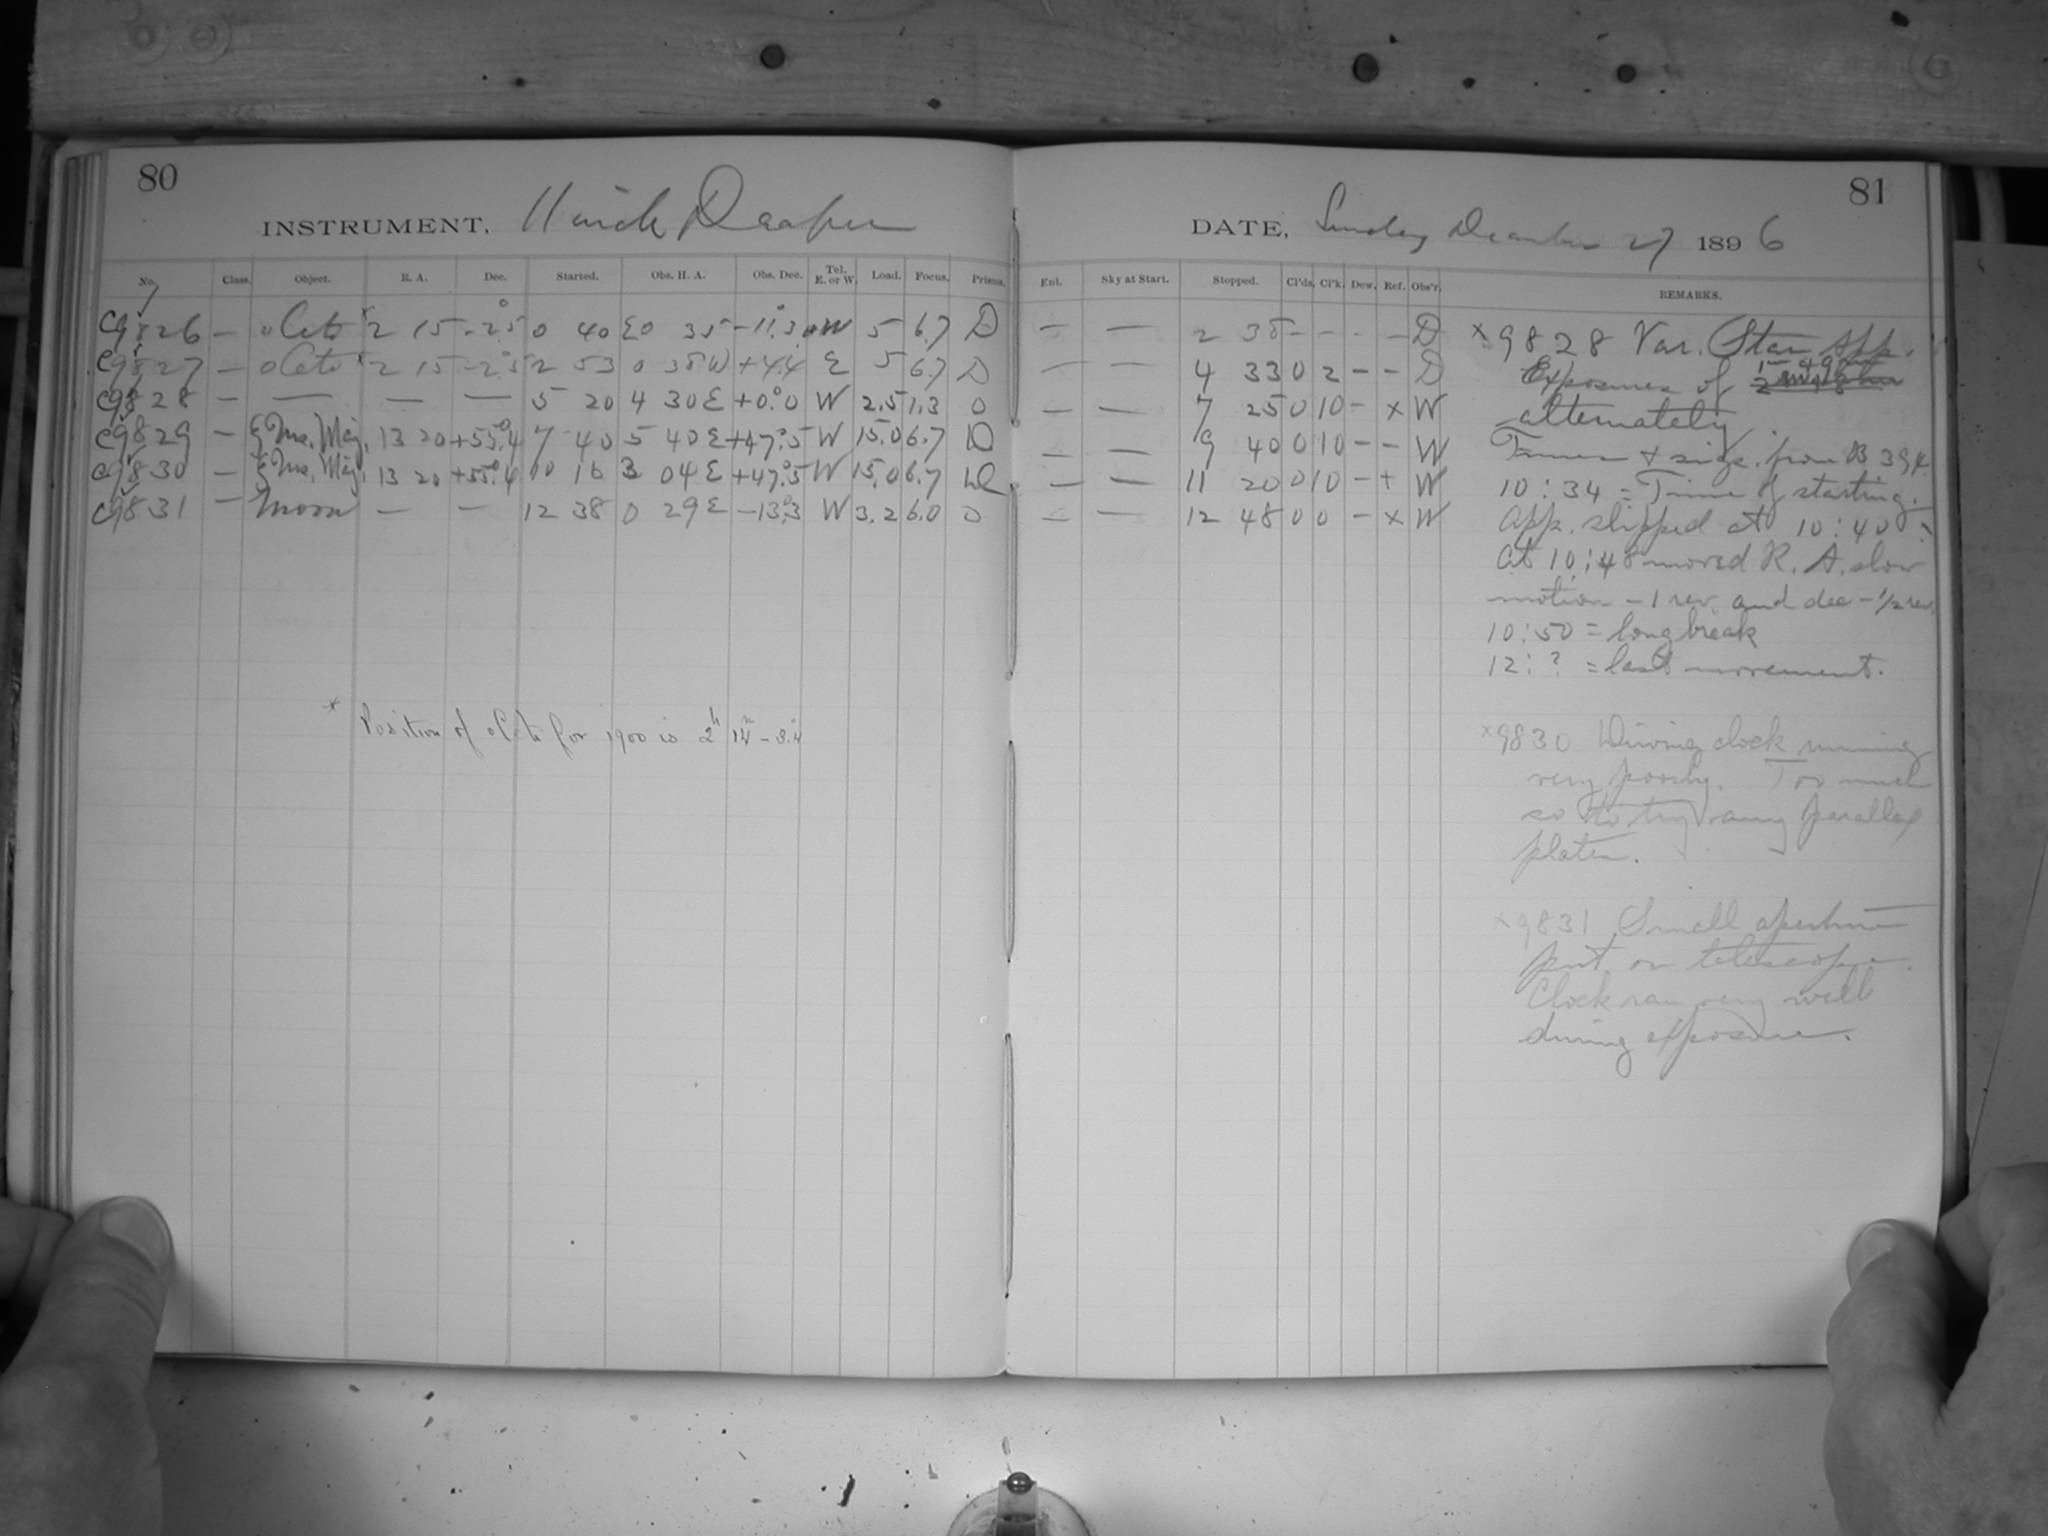 80
INSTRUMENT, 11 inch Draper
No. Class. Object. R. A. Dec. Started. Obs. H. A. Obs. Dec. Tel. E. or W. Load. Focus. Prisms.
C9826 — o Ceti * 2 15 -2.5° 0 40 E0 35 -11.3° W 5 6.7 D
C9827 — o Ceti * 2 15 -2.5° 2 53 0 38W +4.4 E 5 6.7 D
C9828 — — — — 5 20 4 30E +0.°0 W 2.5 1.3 0
C9829 — ξ Urs. Maj. 13 20 +55.°4 7 40 5 40E +47.°5 W 15.0 6.7 D
C9830 — ξ Urs. Maj. 13 20 +55.°4 10 16 3 04E +47.°5 W 15.0 6.7
C9831 — Moon — — 12 38 0 29E -13.°3 W 3.2 6.0 0
* Position of o Ceti for 1900 is 2h 14m -3.4°
81
DATE, Sunday December 27 1896
Enl. Sky at Start. Stopped. Cl'ds. Cl'k. Dew. Ref. Obs'r. REMARKS.
— — 2 38 - - - - D
— — 4 33 0 2 - - D
— — 7 25 0 10 - x W
— — 9 40 0 10 - - W
— — 11 20 0 10 - + W
— — 12 48 0 0 - x W
x9828 Var. Star App.
Exposures of
alternately
Times & sigs. from B 394
10:34 = Time of starting.
App. slipped at 10:40
At 10:48 moved R. A. slow
motion -1 rev. and dec -1/2 rev.
10:50 = long break
12:? = last movement.
x9830 Driving clock running
very poorly. Too much
so to try any parallax
plates.
x9831 Small aperture
put on telescope.
Clock ran very well
during exposure.